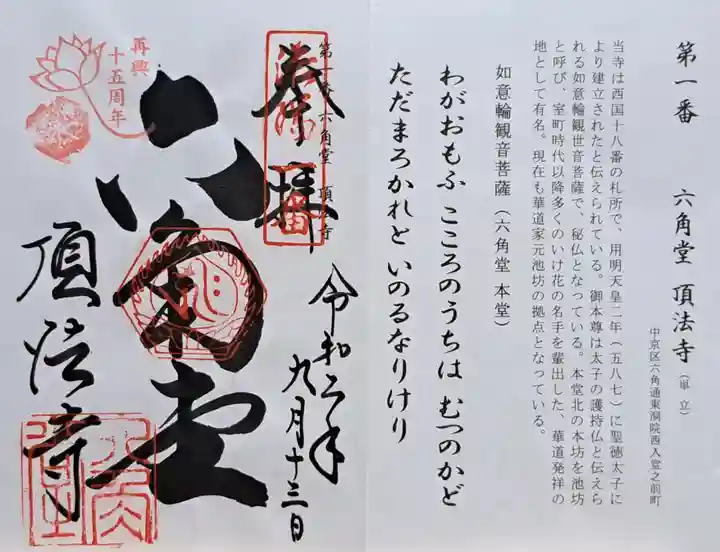 第一番　六角堂 頂法寺（単立）
中京区六角通東洞院西入堂之前町
当寺は西国十八番の札所で、用明天皇二年（五八七）に聖徳太子に
より建立されたと伝えられている。御本尊は太子の護持仏と伝えら
れる如意輪観世音菩薩で、秘仏となっている。本堂北の本坊を池坊
と呼び、室町時代以降多くのいけ花の名手を輩出した、華道発祥の
地として有名。現在も華道家元池坊の拠点となっている。
如意輪観音菩薩（六角堂 本堂）
わがおもふ こころのうちは むつのかど
ただまろかれと いのるなりけり
第一番 六角堂 頂法寺
奉拝
令和二年
九月十三日
六角堂
頂法寺
再興
十五周年